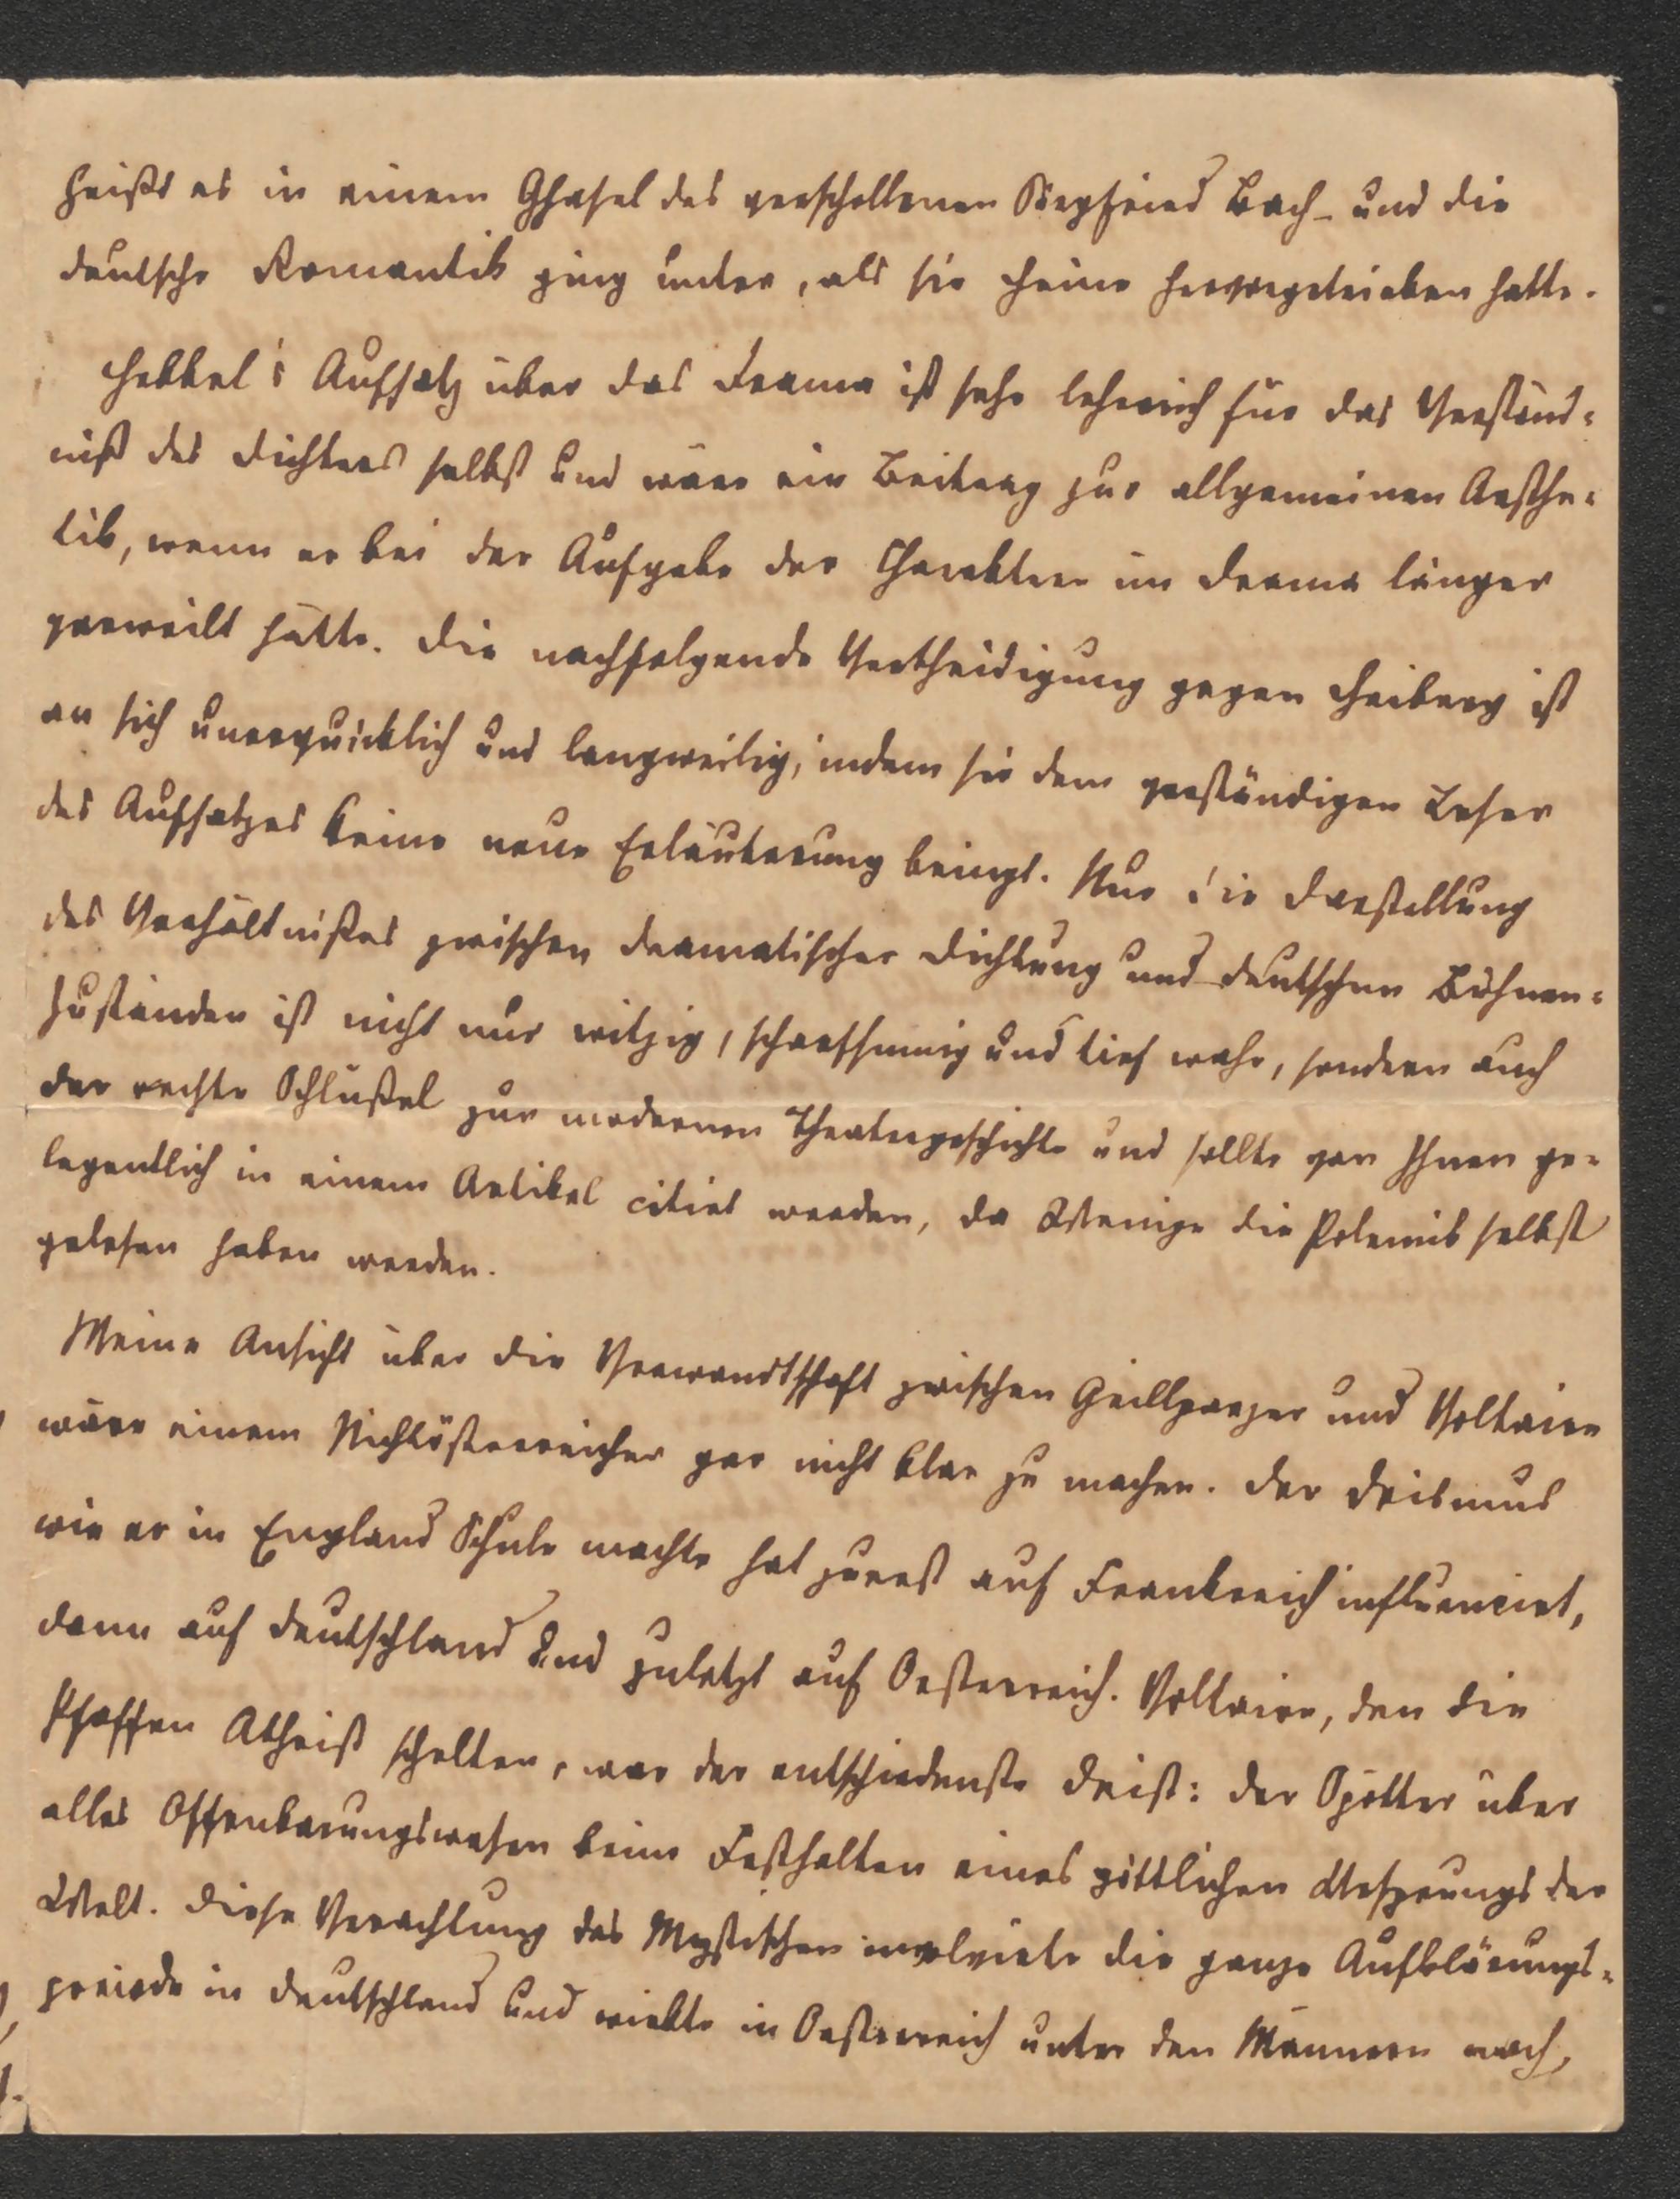 heißt es in einem Ghasel des verschollenen Siegfried Bach – und die
deutsche Romantik ging unter, als sie Heine hervorgetrieben hatte.
Hebbel's Aufsatz über das Drama ist sehr lehrreich für das Verständ=
niß des Dichters selbst und wäre ein Beitrag zur allgemeinen Aesthe=
tik, wenn er bei der Aufgabe der Charaktere im Drama länger
verweilt hätte. Die nachfolgende Vertheidigung gegen Heiberg ist
an sich unerquicklich und langweilig, indem sie dem verständigen Leser
des Aufsatzes keine neue Erläuterung bringt. Nur die Darstellung
des Verhältnißes zwischen dramatischer Dichtung und deutschen Bühnen=
zuständen ist nicht nur witzig, scharfsinnig und tief wahr, sondern auch
der rechte Schlüßel zur modernen Theatergeschichte und sollte von Ihnen ge=
legentlich in einem Artikel citirt werden, da Wenige die Polemik selbst
gelesen haben werden.
Meine Ansicht über die Verwandtschaft zwischen Grillparzer und Voltaire
wäre einem Nichtösterreicher gar nicht klar zu machen. Der Deismus
wie er in England Schule machte hat zuerst auf Frankreich influencirt,
dann auf Deutschland und zuletzt auf Oesterreich. Voltaire, den die
Pfaffen Atheist schelten, war der entschiedenste Deist: der Spötter über
alles Offenbarungswesen beim Festhalten eines göttlichen Ursprungs der
Welt. Diese Verachtung des Mystischen involvirte die ganze Aufklärungs=
periode in Deutschland und wirkte in Oesterreich unter den Männern nach,